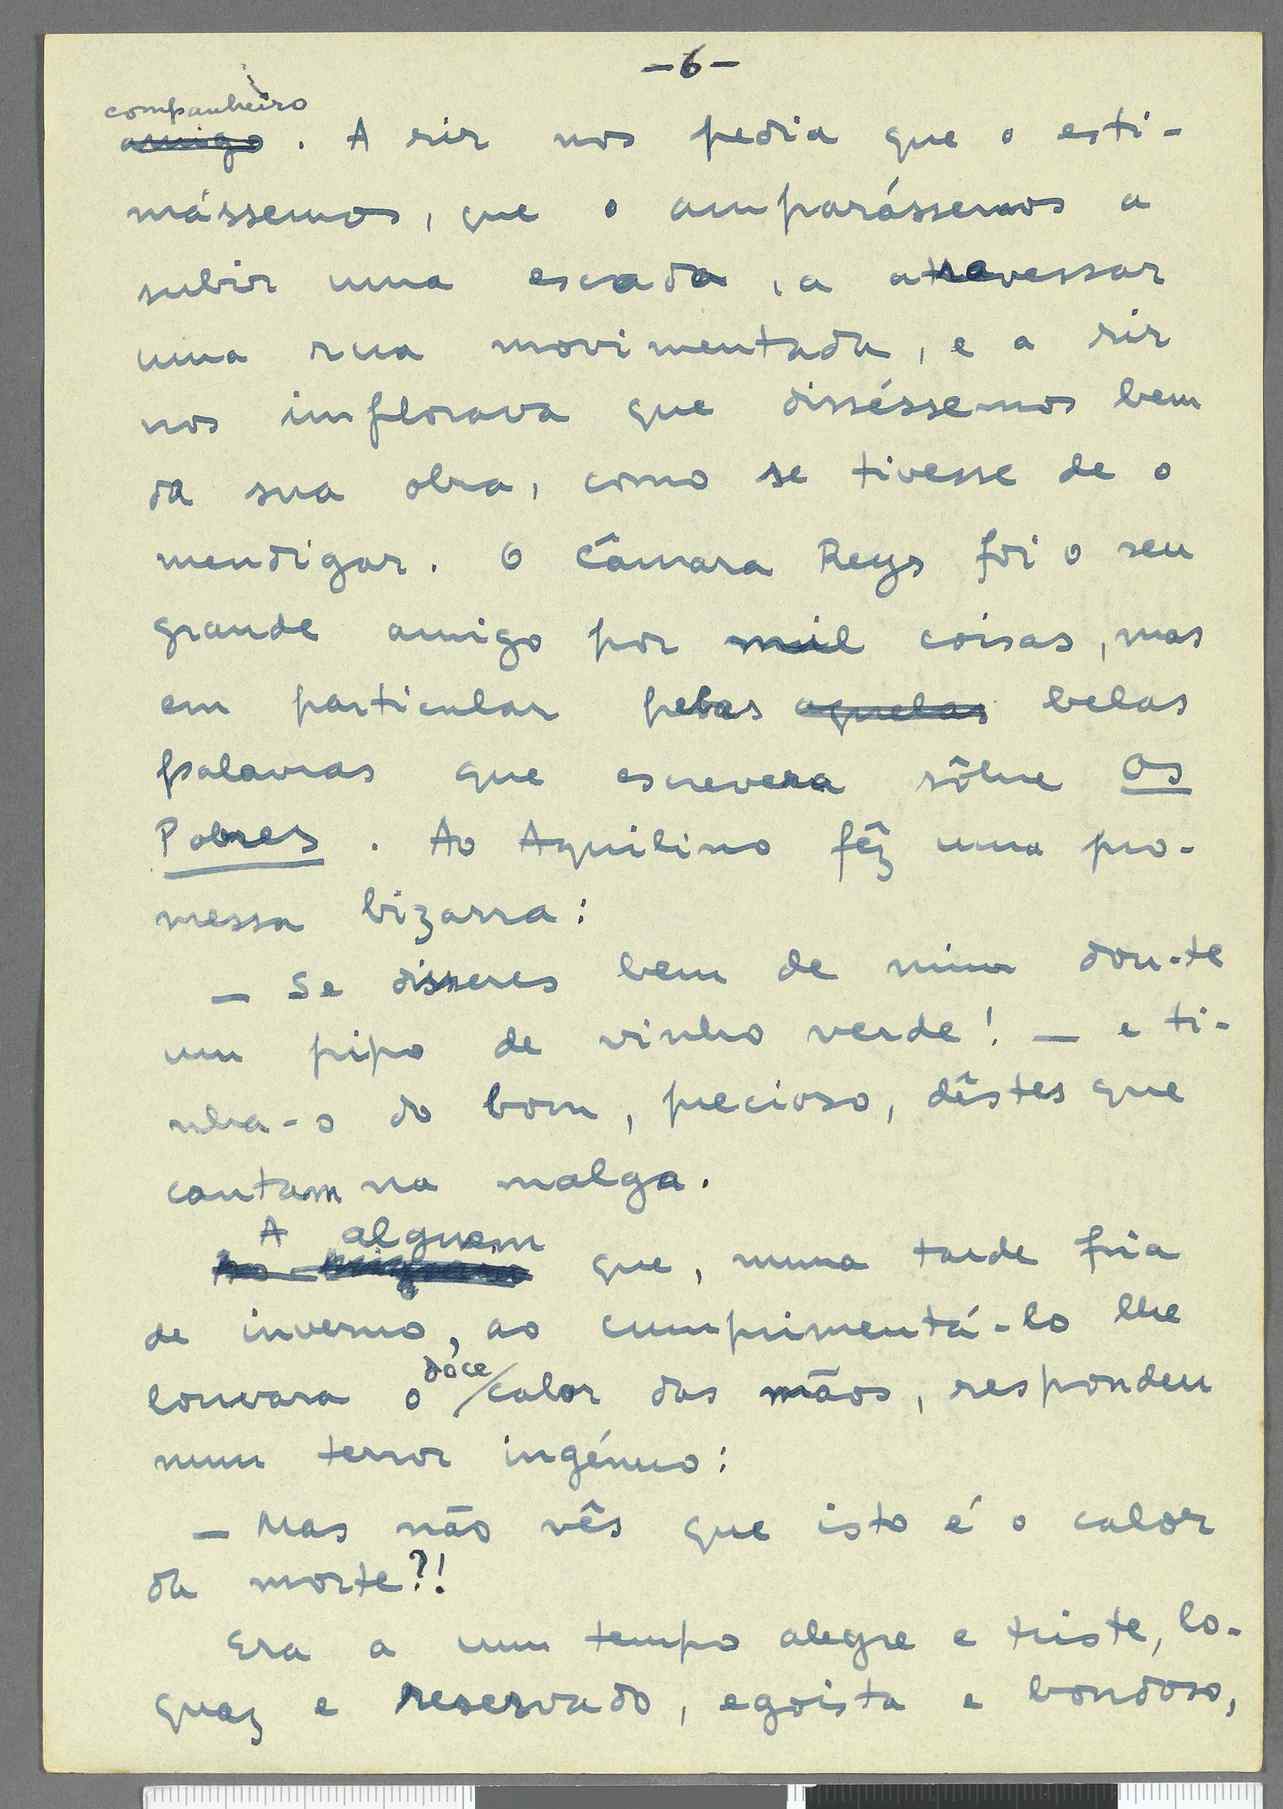 -6-
companheiro
amigo. A rir nos pedia que o esti-
mássemos, que o amparássemos a
subir uma escada, a atravessar
uma rua movimentada, e a rir
nos implorava que disséssemos bem
da sua obra, como se tivesse de o
mendigar. O Câmara Reys foi o seu
grande amigo por mil coisas, mas
em particular pelas aquelas belas
palavras que escrevera sôbre Os
Pobres. Ao Aquilino fêz uma pro-
messa bizarra:
— Se disseres bem de mim dou-te
um pipo de vinho verde! — e ti-
nha-o do bom, precioso, dêstes que
cantam na malga.
A alguem
Ao que, numa tarde fria
de inverno, ao cumprimentá-lo lhe
dôce
louvara o calor das mãos, respondeu
num terror ingénuo:
— Mas não vês que isto é o calor
da morte?!
Era a um tempo alegre e triste, lo-
quaz e reservado, egoista e bondoso,